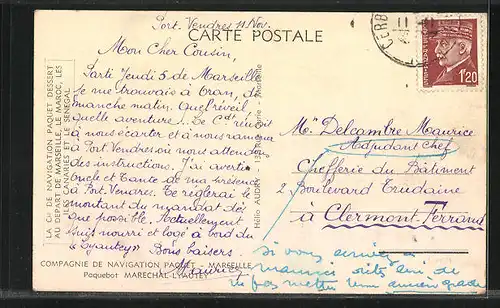 Port-Vendres 11 Nov.
CARTE POSTALE
CERB
1f20
Mon Cher Cousin,
Parti Jeudi 5 de Marseille
je me trouvais à Oran, di-
manche matin. Quel réveil
quelle aventure! Le Ct réussit
à nous écarter et à nous ramener
à Port Vendres où nous attendons
des instructions. J'ai averti
Oncle et Tante de ma présence
à Port-Vendres. Je règlerai le
montant du mandat dès
que possible. Actuellement
suis nourri et logé à bord du
"Lyautey" Bons baisers.
Maurice
Mr Delcambre Maurice
Adjudant Chef
Chefferie du Bâtiment
2 Boulevard Trudaine
à Clermont Ferrand
si vous
LA CIE DE NAVIGATION PAQUET DESSERT
AU DÉPART DE MARSEILLE, LE MAROC, LES
ILES CANARIES ET LE SÉNÉGAL
Hélio AUDRY
COMPAGNIE DE NAVIGATION PAQUET - MARSEILLE
Paquebot MARECHAL LYAUTEY